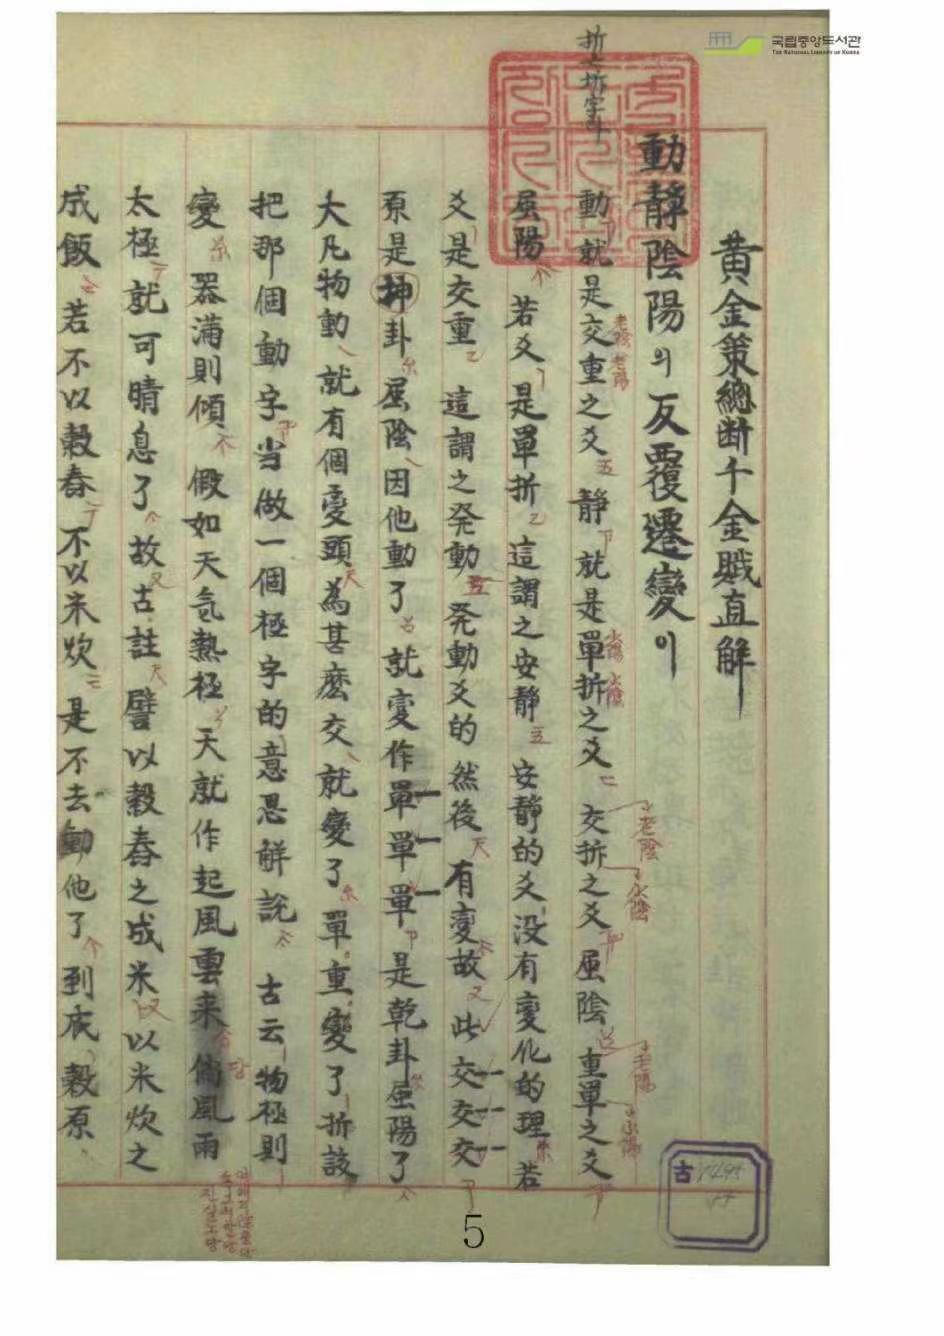 국립중앙도서관
THE NATIONAL LIBRARY OF KOREA
黄金策總断千金賊直解
動靜陰陽의反覆遷變이
動就是交重之爻 靜就是單拆之爻 交拆之爻屬陰 重單之爻
老陰 老陽
少陽 少陰
老陰
少陰
老陽
少陽
屬陽 若爻是單拆 這謂之安靜 安靜的爻没有変化的理 若
爻是交重 這謂之発動 発動爻的然後有変故 此交交交
原是坤卦屬陰因他動了就変作單單單是乾卦屬陽了
大凡物動就有個変頭為甚麽交就變了單重變了拆該
把那個動字当做一個極字的意思解説 古云物極則
變 器滿則傾 假如天氣熱極天就作起風雲来 倘風雨
太極就可晴息了故古註譬以穀舂之成米以米炊之
成飯 若不以穀舂不以米炊是不去動他了到底穀原
古
5